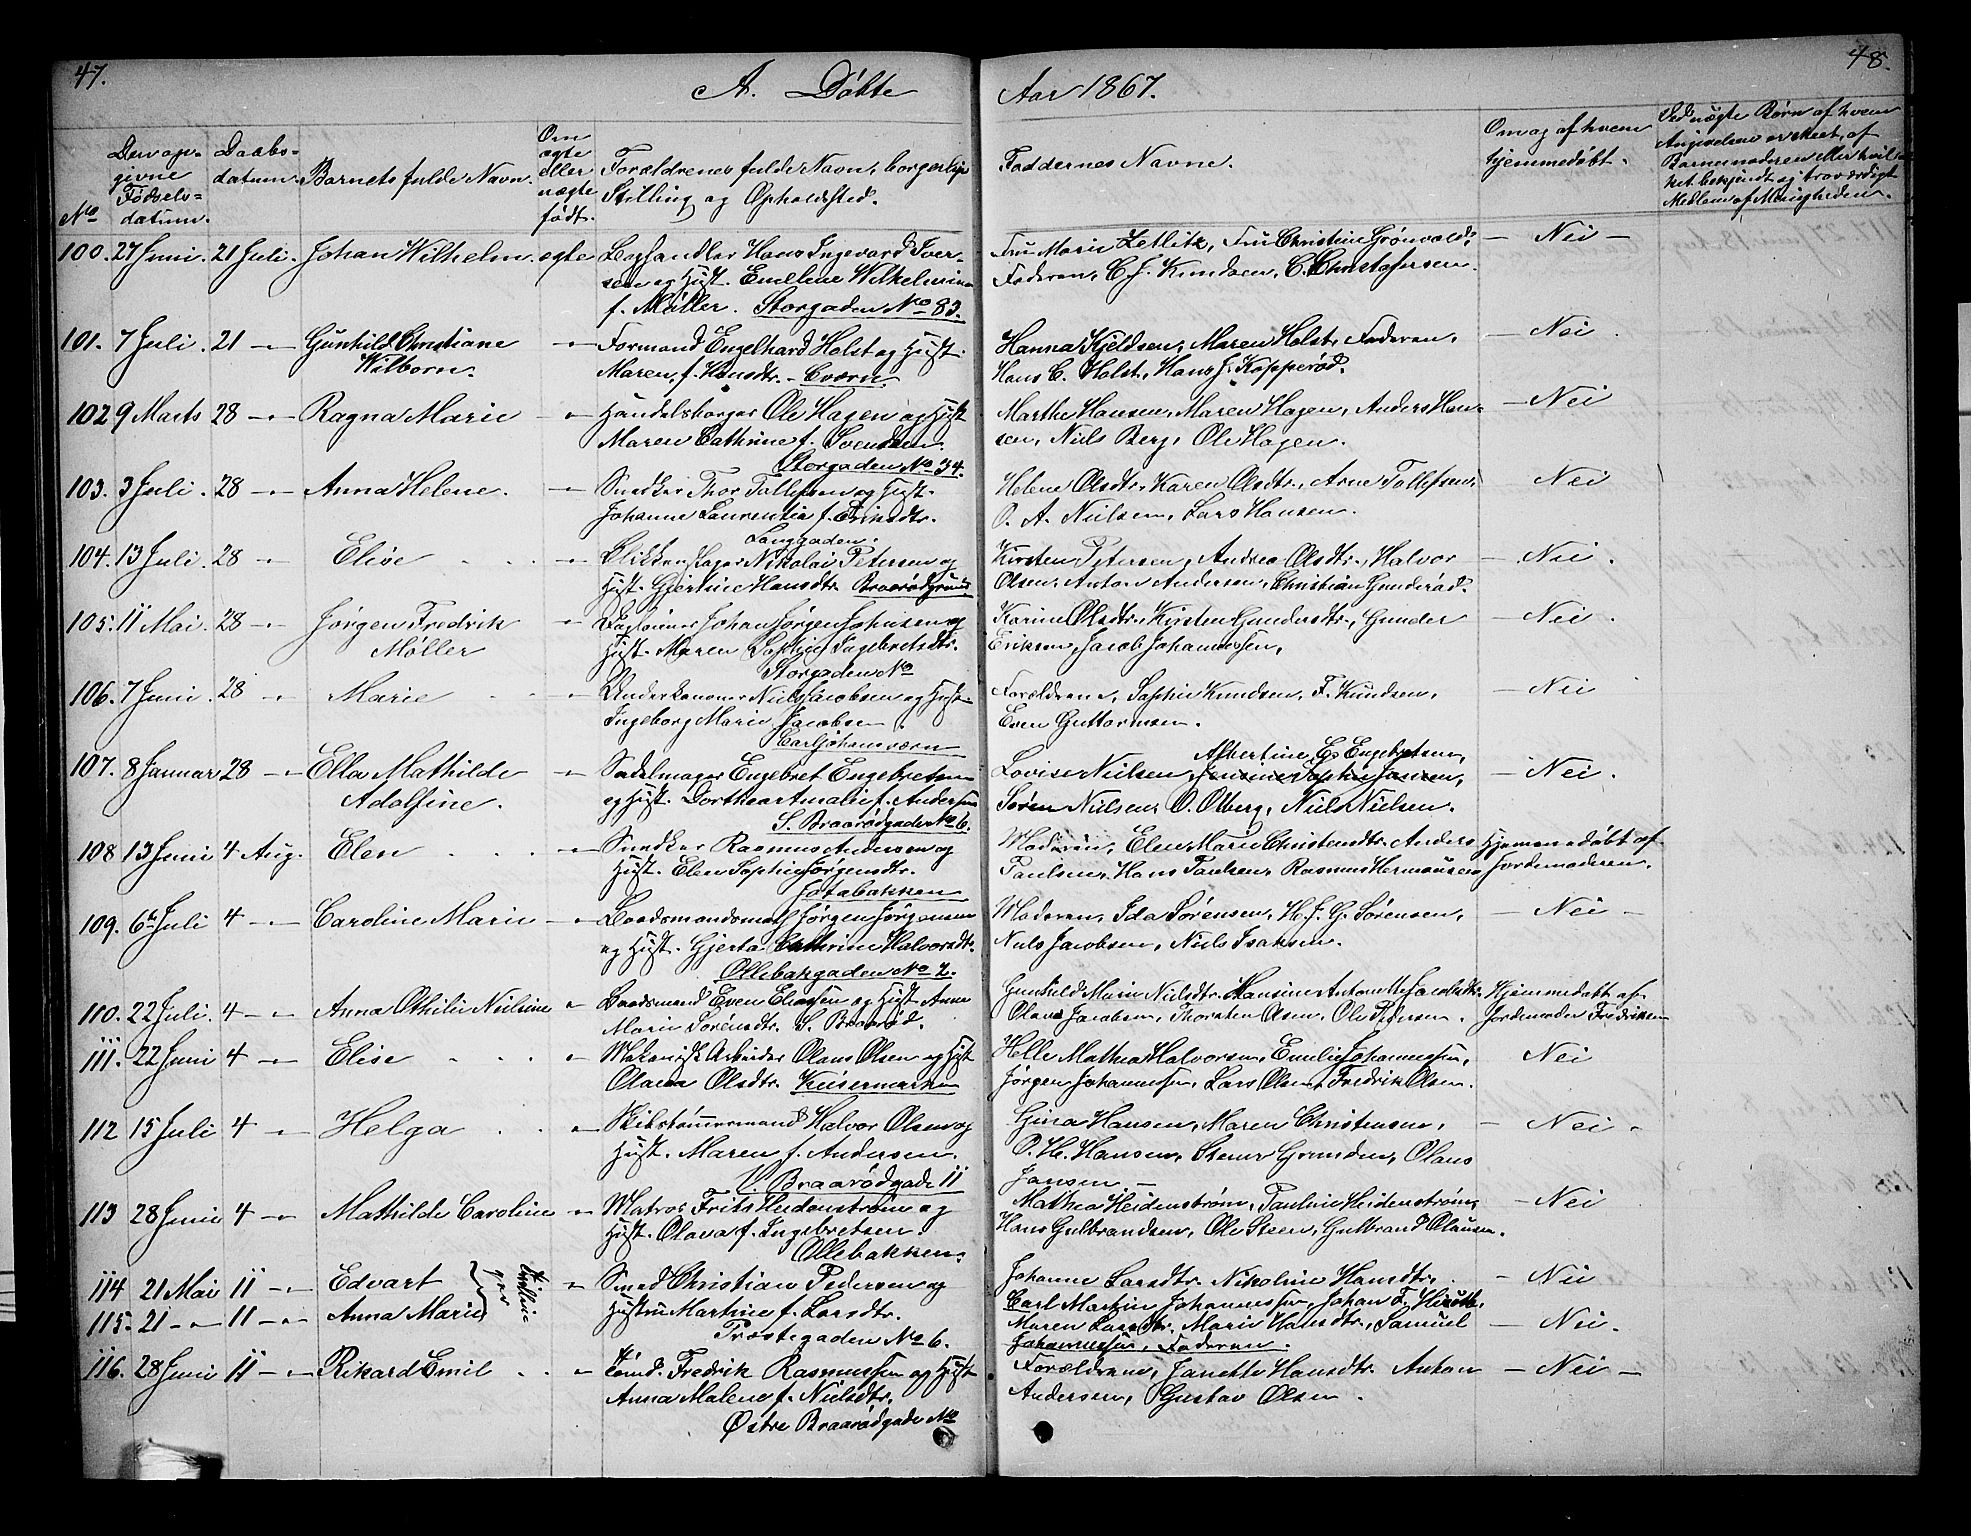 47.
A. Döbte
Aar 1867.
48.
No
Den op-
givne
Fødsels-
datum.
Daabs-
datum.
Barnets fulde Navn.
Om
ægte
eller
uægte
født.
Forældrenes fulde Navn, borgerlige
Stilling og Opholdsted.
Faddernes Navne.
Om og af hvem
hjemmedøbt.
Ved uægte Børn af hvem
Angivelsen er skeet, af
Barnemoderen eller hvil-
ket bekjendt og troværdigt
Medlem af Menigheden.
100. 27 Juni. 21 Juli. Johan Wilhelm. ægte Boghandler Hans Ingevard Iver-
sen og Hust. Emeline Wilhelmine
f. Møller. Storgaden No 83.
Fru Marie Zetlitz, Fru Christine Grönvold,
Faderen, C. J. Knudsen, C. Christofersen.
— Nei —
101. 7 Juli. 21 -"- Gunhild Christiane
Wilborn.
-"- Formand Engelhard Holst og Hust.
Maren, f. Hansdtr. - Cværn.
Hanna Kjeldsen, Maren Holst, Faderen,
Hans C. Holst, Hans J. Kopperød.
— Nei.
102 9 Marts 28 -"- Ragna Marie -"- Handelsborger Ole Hagen og Hust
Maren Cathrine f. Svendsen.
Storgaden No 34.
Marthe Hansen, Maren Hagen, Anders Han-
sen, Niels Berg, Ole Hagen.
— Nei
103. 3 Juli. 28 -"- Anna Helene. -"- Snedker Thor Tollefsen og Hust.
Johanne Laurentia f. Eriksdtr.
Langgaden.
Helene Olsdtr., Karen Olsdtr., Arne Tollefsen,
O. A. Nielsen, Lars Hansen.
— Nei
104. 13 Juli. 28 -"- Elise -"- Blikkenslager Nikolai Petersen og
Hust. Gjertine Hansdtr. Braarødgrund
Kirsten Petersen, Andrea Olsdtr., Halvor
Olsen, Anton Andersen, Christian Gunderød.
— Nei.
105. 11 Mai. 28 -"- Jørgen Fredrik
Møller
-"- Dagleiner Johan Jörgen Johnsen og
Hust. Maren Sophie Ingebretsdtr.
Storgaden No
Karine Olsdtr., Kirsten Gundersdtr., Gunder
Eriksen, Jacob Johannessen,
— Nei.
106. 7 Juni. 28 -"- Marie -"- Underkanoner Niels Jacobsen og Hust.
Ingeborg Marie Jacobsen
Carljohansværn
Forældrene, Sophie Knudsen, F. Knudsen,
Even Guttormsen.
— Nei
107. 8 Januar 28 -"- Ella Mathilde
Adolfine.
-"- Sadelmager Engebret Engebretsen
og Hust. Dorthea Amalie f. Andersen
S. Braarødgade No 6.
Albertine E. Engebretsen,
Lovise Nielsen, Jensine Sophie Jansen,
Søren Nielsen, O. Olberg, Niels Nielsen.
— Nei.
108 13 Juni 4 Aug. Elen -"- Snedker Rasmus Andersen og
Hust. Elen Sophie Jørgensdtr.
Fatabakken
Moderen, Elen Marie Christensdtr., Anders
Paulsen, Hans Paulsen, Rasmus Hermansen
Hjemmedøbt af
Jordemoderen.
109. 6te Juli 4 -"- Caroline Marie -"- Baadsmandsmath Jörgen Jörgensen
og Hust. Gjerta Cathrine Halvorsdtr.
Ollebakgaden No 2.
Moderen, Ida Sørensen, H. J. G. Sørensen,
Niels Jacobsen, Niels Isaksen.
— Nei —
110. 22 Juli. 4 -"- Anna Othilie Nielsine -"- Baadsmand Even Eliassen og Hust. Anne
Marie Sørensdtr. S. Braarød.
Gunhild Marie Nielsdtr. Hansine Antonette Jacobsdtr.
Olaus Jacobsen, Thorsten Olsen, Ole Pedersen.
Hjemmedøbt af
Jordemoder Fredriksen
111. 22 Juni 4 -"- Elise -"- Mekanisk Arbeider Olaus Olsen og Hust
Olava Olsdtr. Keisermarken
Helle Mathea Halvorsen, Emilie Johannessen,
Jørgen Johannessen, Lars Olsen, Fredrik Olsen.
Nei
112 15 Juli 4 -"- Helga -"- Skibstømmermand Halvor Olsen og
Hust. Maren f. Andersen.
V. Braarødgade 11
Gina Hansen, Maren Christensen,
O. H. Hansen, Stener Grunden, Olaus
Jansen.
— Nei.
113 28 Juni 4 -"- Mathilde Caroline -"- Matros Frits Heidenstrøm og
Hust. Olava f. Ingebretsen.
Ollebakken.
Mathea Heidenstrøm, Pauline Heidenstrøm,
Hans Gulbrandsen, Ole Steen, Gulbrand Olausen.
— Nei
114 21 Mai 11 -"- Edvart } Tvillin-
ger
-"- Smed Christian Pedersen og
Hustru Martine f. Larsdtr.
Præstegaden No 6.
Johanne Larsdtr. Nikoline Hansdtr.
Carl Martin Johannessen, Johan F.
- Nei
115. 21 -"- 11 -"- Anna Marie
Maren Larsdtr. Marie Hansdtr., Samuel
Johannessen, Faderen.
— Nei.
116. 28 Juni 11 -"- Rikard Emil -"- Tømd. Fredrik Rasmussen og Hust
Anna Malene f. Nielsdtr.
Østre Braarødgade No
Forældrene, Janette Hansdtr. Anton
Andersen, Gustav Olsen.
— Nei —